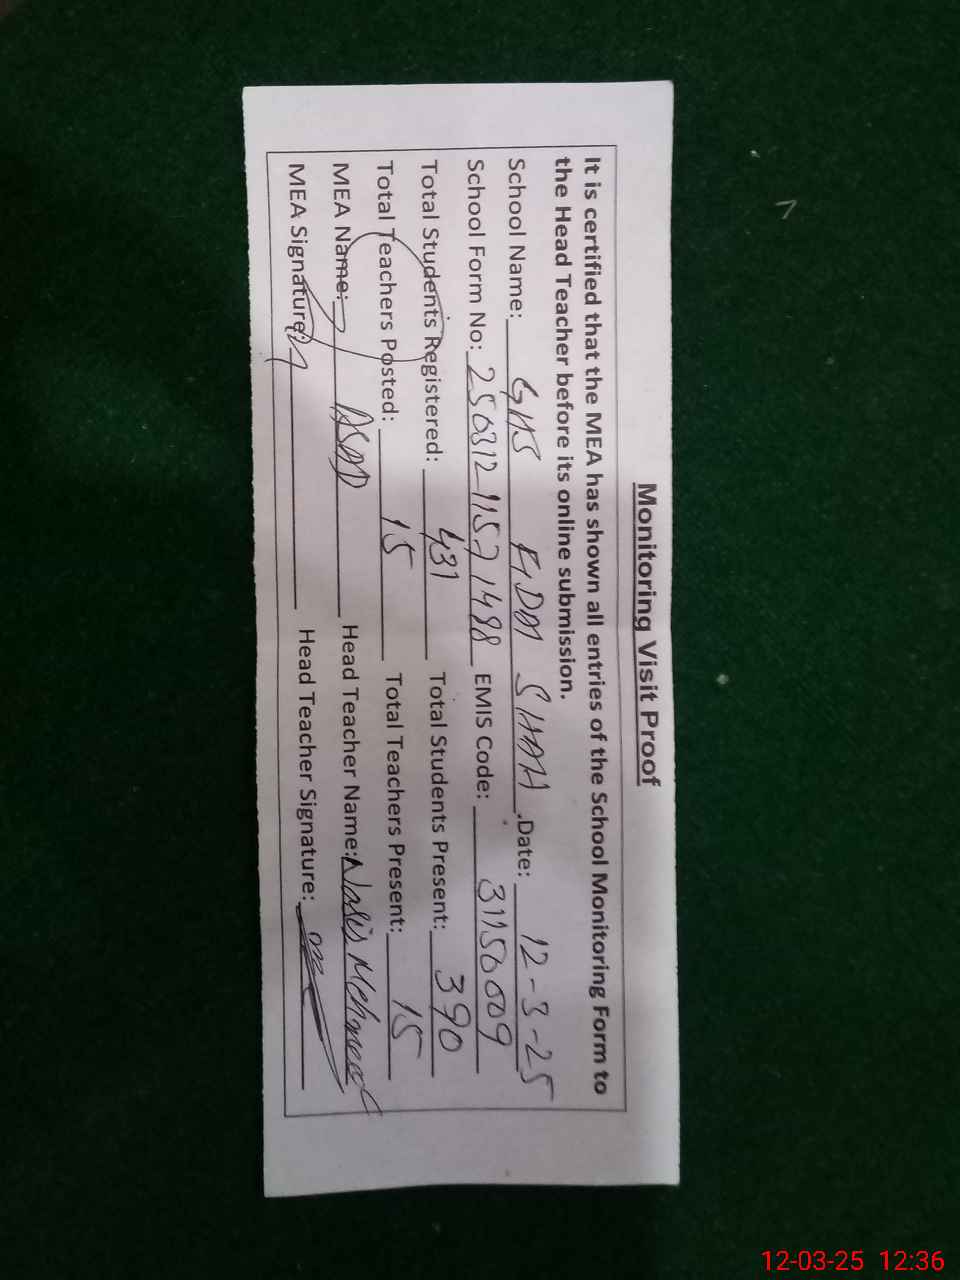 Monitoring Visit Proof
It is certified that the MEA has shown all entries of the School Monitoring Form to
the Head Teacher before its online submission.
School Name: GHS FIDDA SHAH .Date: 12-3-25
School Form No: 250312-11571488 EMIS Code: 31150009
Total Students Registered: 431 Total Students Present: 390
Total Teachers Posted: 15 Total Teachers Present: 15
MEA Name: ASAD Head Teacher Name: Nasir Mehmood
MEA Signature: Head Teacher Signature:
12-03-25 12:36